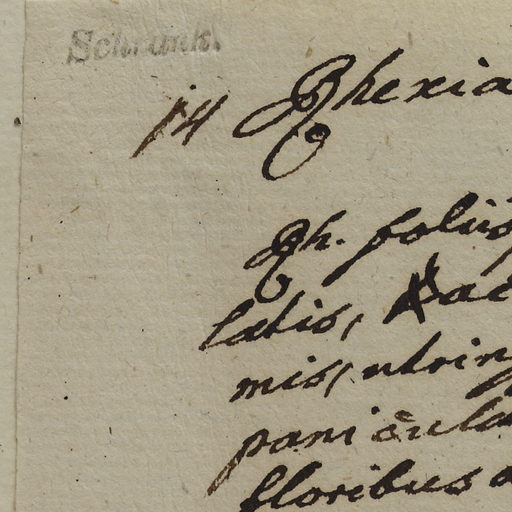 Schrank.
14 Rhexia
Rh. foliis
latis,
mis, utrinq
panicula
floribus